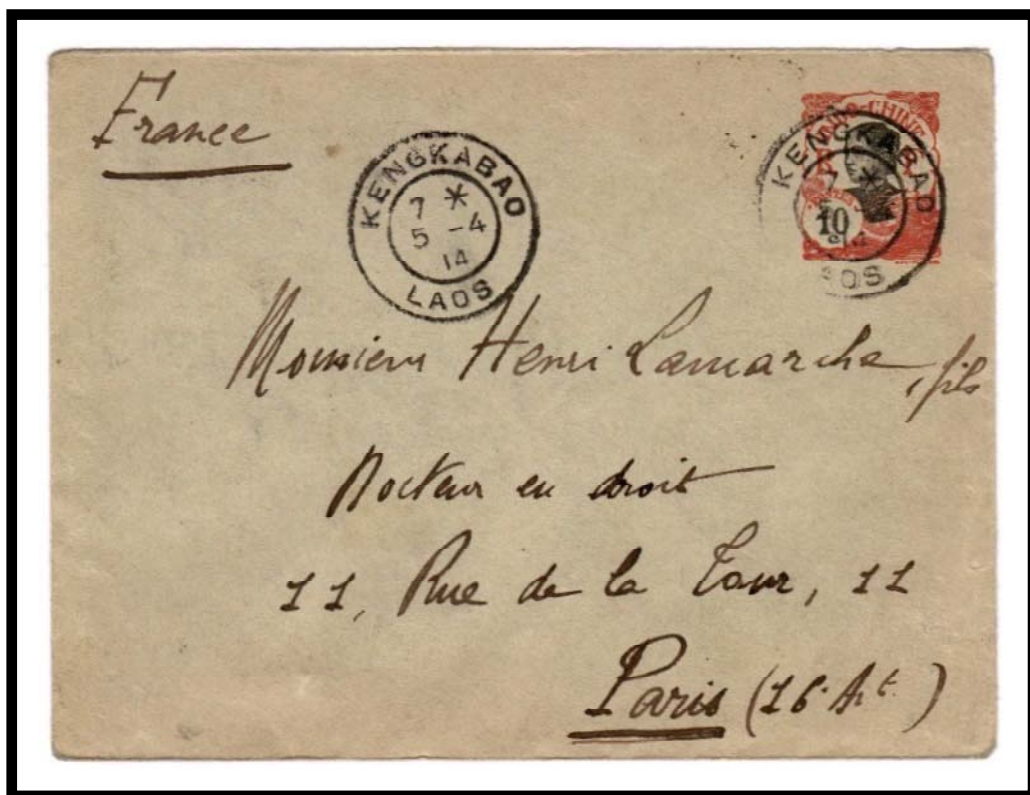 France
KENGKABAO
7 *
5 -4
14
LAOS
INDO-CHINE
KENGKABAO
7 *
10
14
OS
Monsieur Henri Lamarche, fils
Docteur en droit
11, Rue de la Tour, 11
Paris (16e Art)